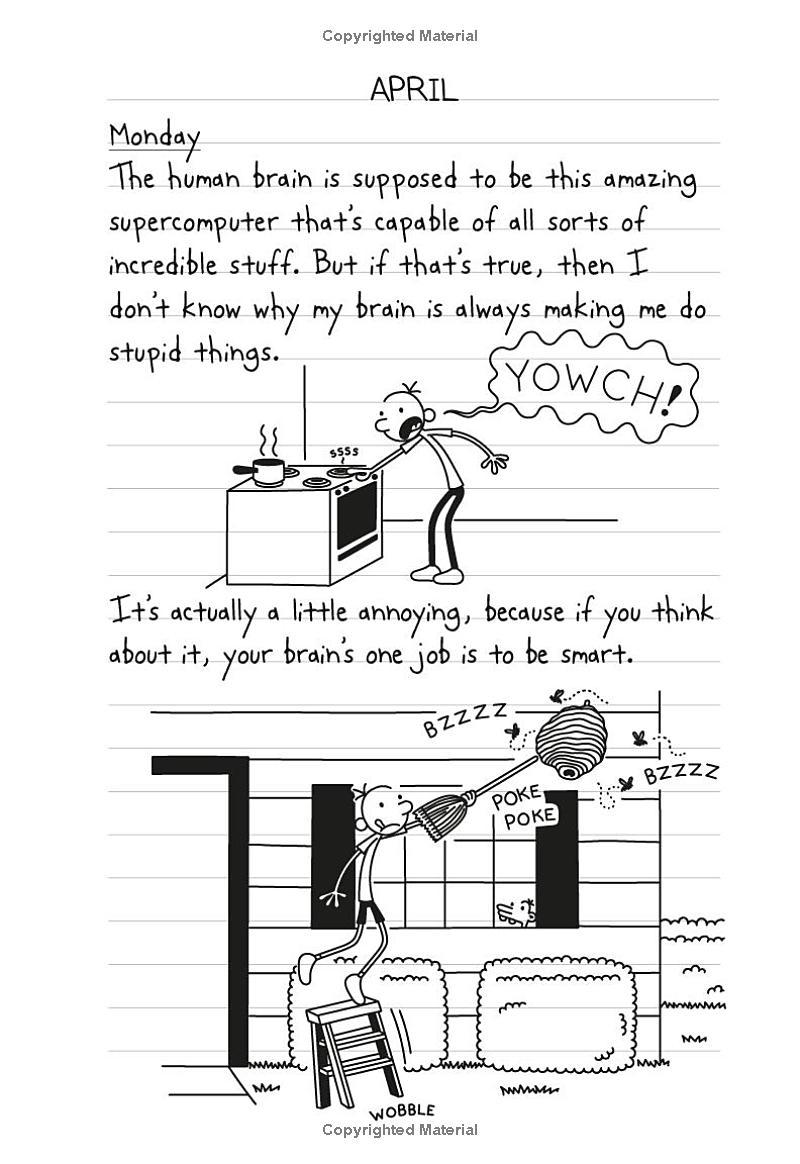 Copyrighted Material
APRIL
Monday
The human brain is supposed to be this amazing
supercomputer that's capable of all sorts of
incredible stuff. But if that's true, then I
don't know why my brain is always making me do
stupid things.
YOWCH!
ssss
It's actually a little annoying, because if you think
about it, your brain's one job is to be smart.
BZZZZ
BZZZZ
POKE
POKE
WOBBLE
Copyrighted Material